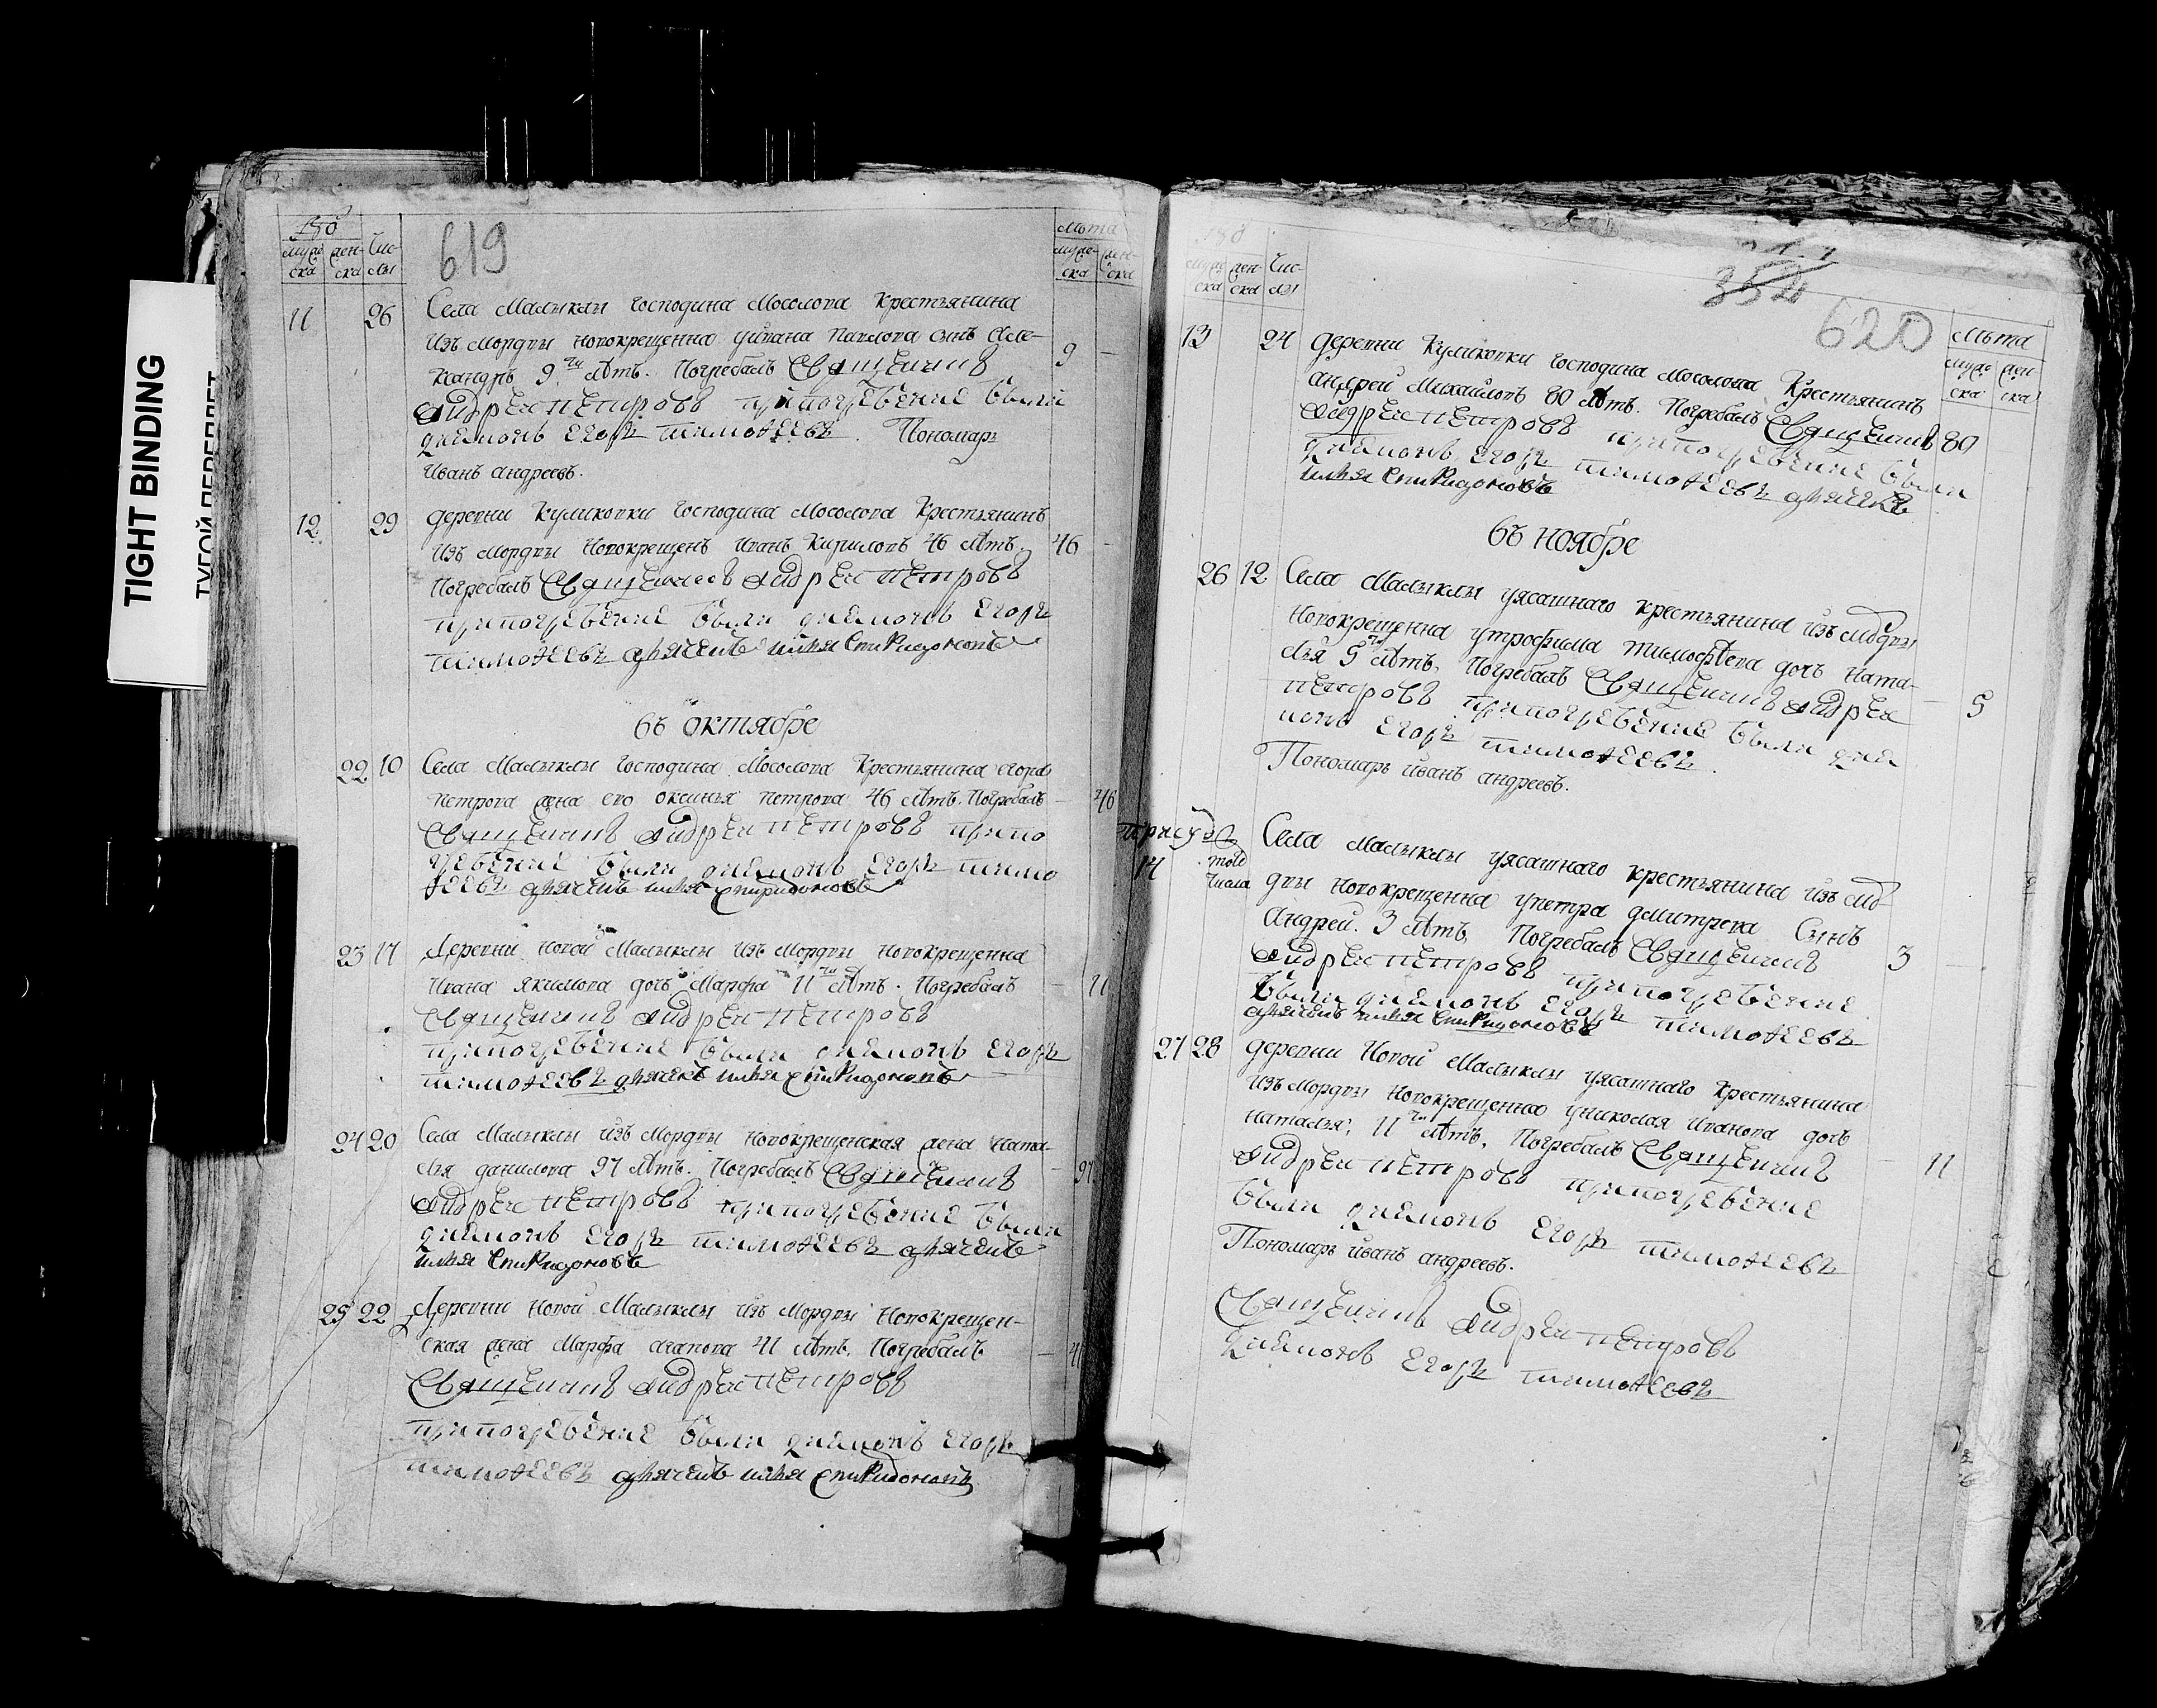 TIGHT BINDING
ТУГОЙ ПЕРЕПЛЕТ
619
муже-
ска
жен-
ска
Чис-
лы
Лѣта
муже-
ска
жен-
ска
11 26 Села Малыклы господина Мосолова крестьянина
изъ Мордвы новокрещенна уивана Павлова сынъ Але-
ксандръ 9ти лѣтъ. Погребалъ Священникъ 9
андреи петровъ припогребение были
диаконъ егоръ тимофеевъ. Пономарь
иванъ андреевъ.
12 29 деревни Куликовки господина Мосолова Крестьянинъ
изъ Мордвы новокрещенъ иванъ Кирилловъ 46 лѣтъ. 46
Погребалъ Священникъ андреи петровъ
припогребение были диаконъ егоръ
тимофеевъ дьячекъ илья спиридоновъ
въ октябре
22 10 Села Малыклы господина Мосолова Крестьянина егора
петрова жена ево оксинья петрова 46 лѣтъ. Погребалъ 46
Священникъ андреи петровъ припо
гребение были диаконъ егоръ тимо
феевъ дьячекъ илья спиридоновъ
23 17 Деревни новой Малыклы изъ Мордвы новокрещенна
ивана якимова дочь Марфа 11ти лѣтъ. Погребалъ 11
Священникъ андреи петровъ
припогребение были диаконъ егоръ
тимофеевъ дьячекъ илья спиридоновъ
24 20 Села Малыклы изъ Мордвы новокрещенская жена ната-
лья данилова 97 лѣтъ. Погребалъ Священникъ 97
андреи петровъ припогребение были
диаконъ егоръ тимофеевъ дьячекъ
илья спиридоновъ
25 22 Деревни новой Малыклы изъ Мордвы новокрещен-
ская жена Марфа агапова 41 лѣтъ. Погребалъ 41
Священникъ андреи петровъ
припогребение были диаконъ егоръ
тимофеевъ дьячекъ илья спиридоновъ
352
620
муже-
ска
жен-
ска
Чис-
лы
Лѣта
муже-
ска
жен-
ска
13 24 деревни Куликовки господина Мосолова Крестьянинъ
андрей Михайловъ 80 лѣтъ. Погребалъ Священникъ 80
андреи петровъ припогребение были
диаконъ егоръ тимофеевъ дьячекъ
илья спиридоновъ
въ ноябре
26 12 Села Малыклы уясашнаго крестьянина изъ Мордвы
новокрещенна утрофима тимофѣева дочь ната-
лья 5ти лѣтъ. Погребалъ Священникъ андреи 5
петровъ припогребение были диа
конъ егоръ тимофеевъ.
Пономарь иванъ андреевъ.
14 того
числа
Села Малыклы уясашнаго крестьянина изъ Мор-
двы новокрещенна упетра дмитрева Сынъ
Андрей. 3 лѣтъ, Погребалъ Священникъ 3
андреи петровъ припогребение
были диаконъ егоръ тимофеевъ
дьячекъ илья спиридоновъ
27 28 деревни Новой Малыклы уясашнаго Крестьянина
изъ Мордвы новокрещенна униколая иванова дочь
наталья, 11ти лѣтъ, Погребалъ Священникъ 11
андреи петровъ припогребение
были диаконъ егоръ тимофеевъ
Пономарь иванъ андреевъ.
Священникъ андреи петровъ
диаконъ егоръ тимофеевъ